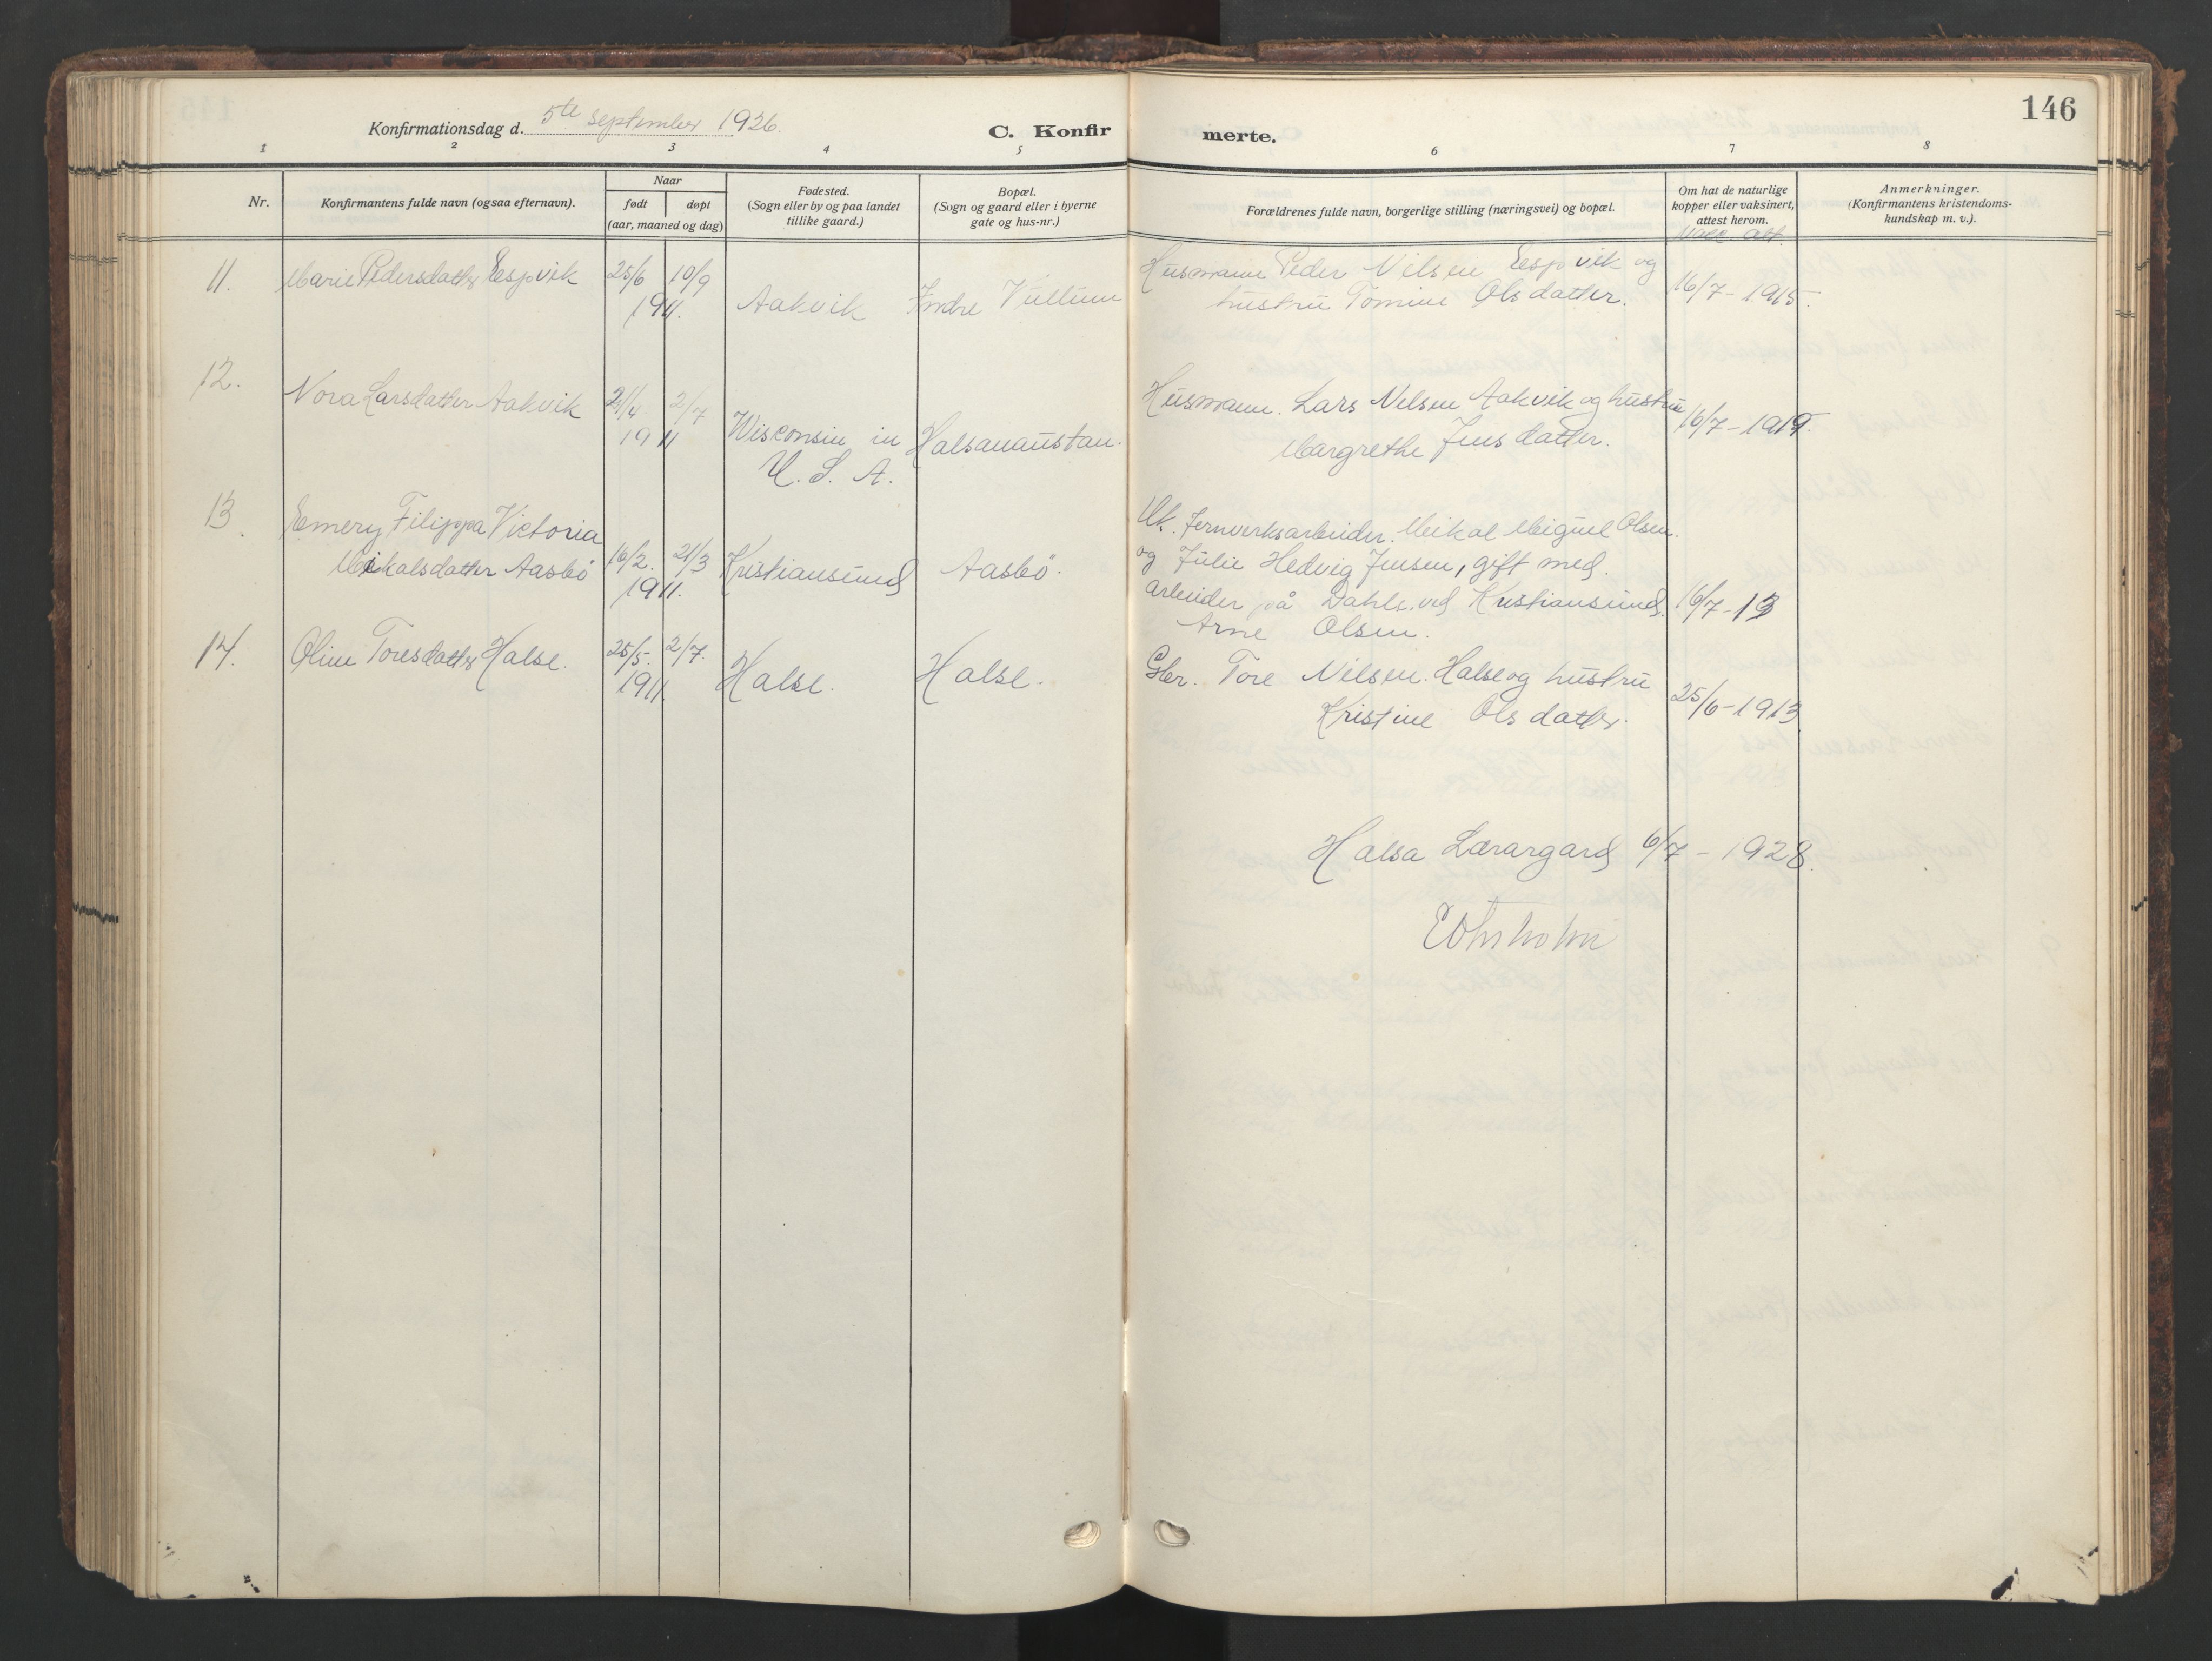 146
Konfirmationsdag d. 5te september 1926.
C. Konfirmerte.
1 2 3 4 5 6 7 8
Nr.
Konfirmantens fulde navn (ogsaa efternavn).
Naar
født døpt
(aar, maaned og dag)
Fødested.
(Sogn eller by og paa landet
tillike gaard.)
Bopæl.
(Sogn og gaard eller i byerne
gate og hus-nr.)
Forældrenes fulde navn, borgerlige stilling (næringsvei) og bopæl.
Om hat de naturlige
kopper eller vaksinert,
attest herom.
Vacc. att.
Anmerkninger.
(Konfirmantens kristendoms-
kundskap m. v.).
11. Marie Pedersdatter Espvik 25/6 10/9
1911. Aakvik Indre Vullum
Husmann Peder Nilsen Espvik og
hustru Tomine Olsdatter. 16/7-1915.
12. Nora Larsdatter Aakvik 21/4 2/7
1911 Wisconsin in Halsanaustan.
U. S. A.
Husmann. Lars Nilsen Aakvik og hustru
Margrethe Jensdatter. 16/7-1919.
13. Emery Filippa Victoria
Mikalsdatter Aasbö 16/2. 21/3 Kristiansund Aasbö.
1911.
Uk. Jernverksarbeider. Mikal Miguel Olsen.
og Julie Hedvig Jensen, gift med.
arbeider på Dahle ved Kristiansund. 16/7-13
Arne Olsen.
14. Oline Toresdatter Halse. 25/5. 2/7.
1911. Halse. Halse.
Gbr. Tore Nilsen Halse og hustru
Kristine Olsdatter. 25/6-1913
Halsa Lærargard 6/7-1928.